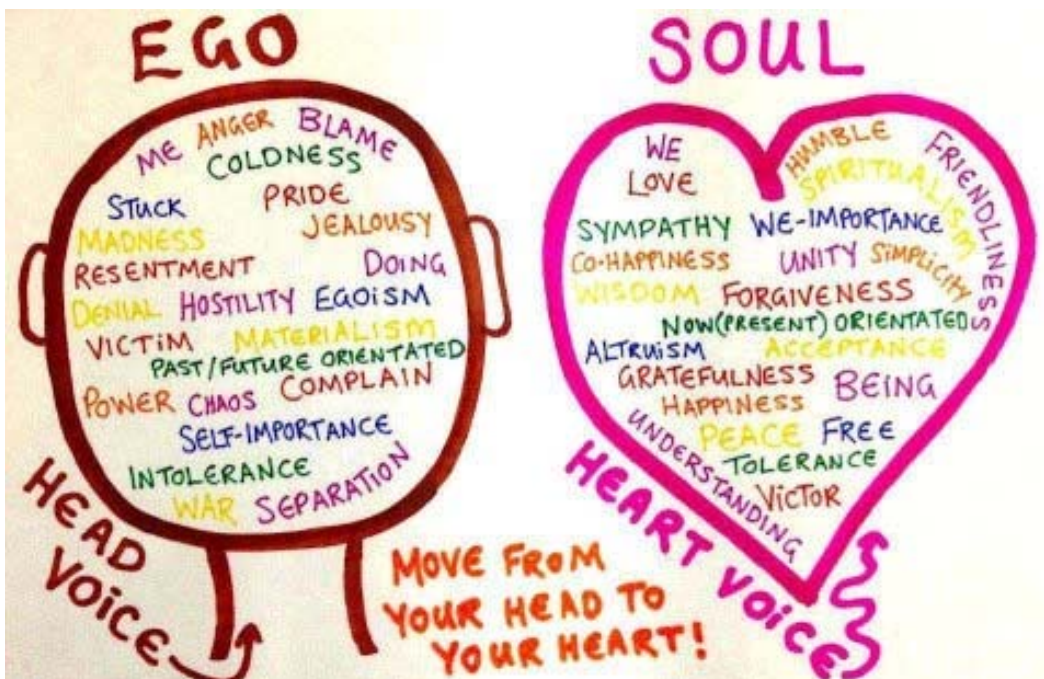 EGO
ME ANGER BLAME
COLDNESS
STUCK PRIDE
JEALOUSY
MADNESS
RESENTMENT DOING
DENIAL HOSTILITY EGOISM
VICTIM MATERIALISM
PAST/FUTURE ORIENTATED
POWER CHAOS COMPLAIN
SELF-IMPORTANCE
INTOLERANCE
WAR SEPARATION
HEAD
VOICE
MOVE FROM
YOUR HEAD TO
YOUR HEART!
SOUL
WE HUMBLE FRIENDLINESS
LOVE SPIRITUALISM
SYMPATHY WE-IMPORTANCE
CO-HAPPINESS UNITY SIMPLICITY
WISDOM FORGIVENESS
NOW(PRESENT) ORIENTATED
ALTRUISM ACCEPTANCE
GRATEFULNESS BEING
HAPPINESS
PEACE FREE
UNDERSTANDING TOLERANCE
VICTOR
HEART VOICE